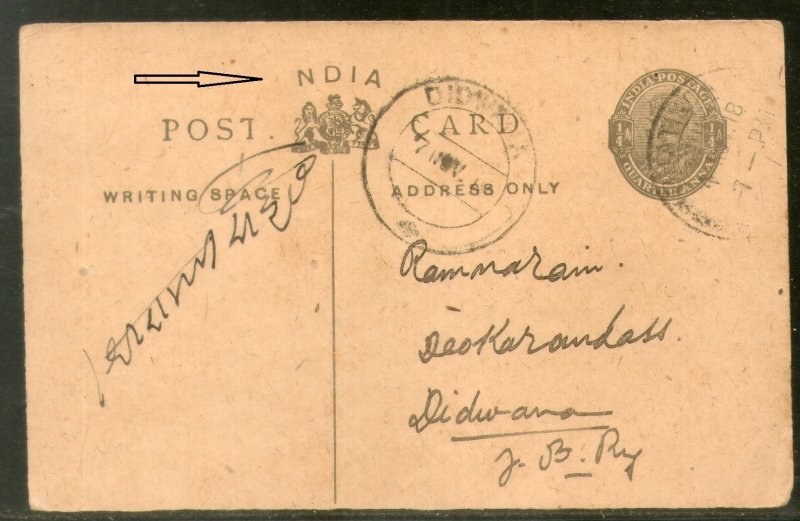 NDIA
POST CARD
WRITING SPACE
ADDRESS ONLY
INDIA POSTAGE
1/4 A
QUARTER ANNA
7 NOV
7-PM
Ramnarain.
Deokarandass.
Didwana
J. B. Ry